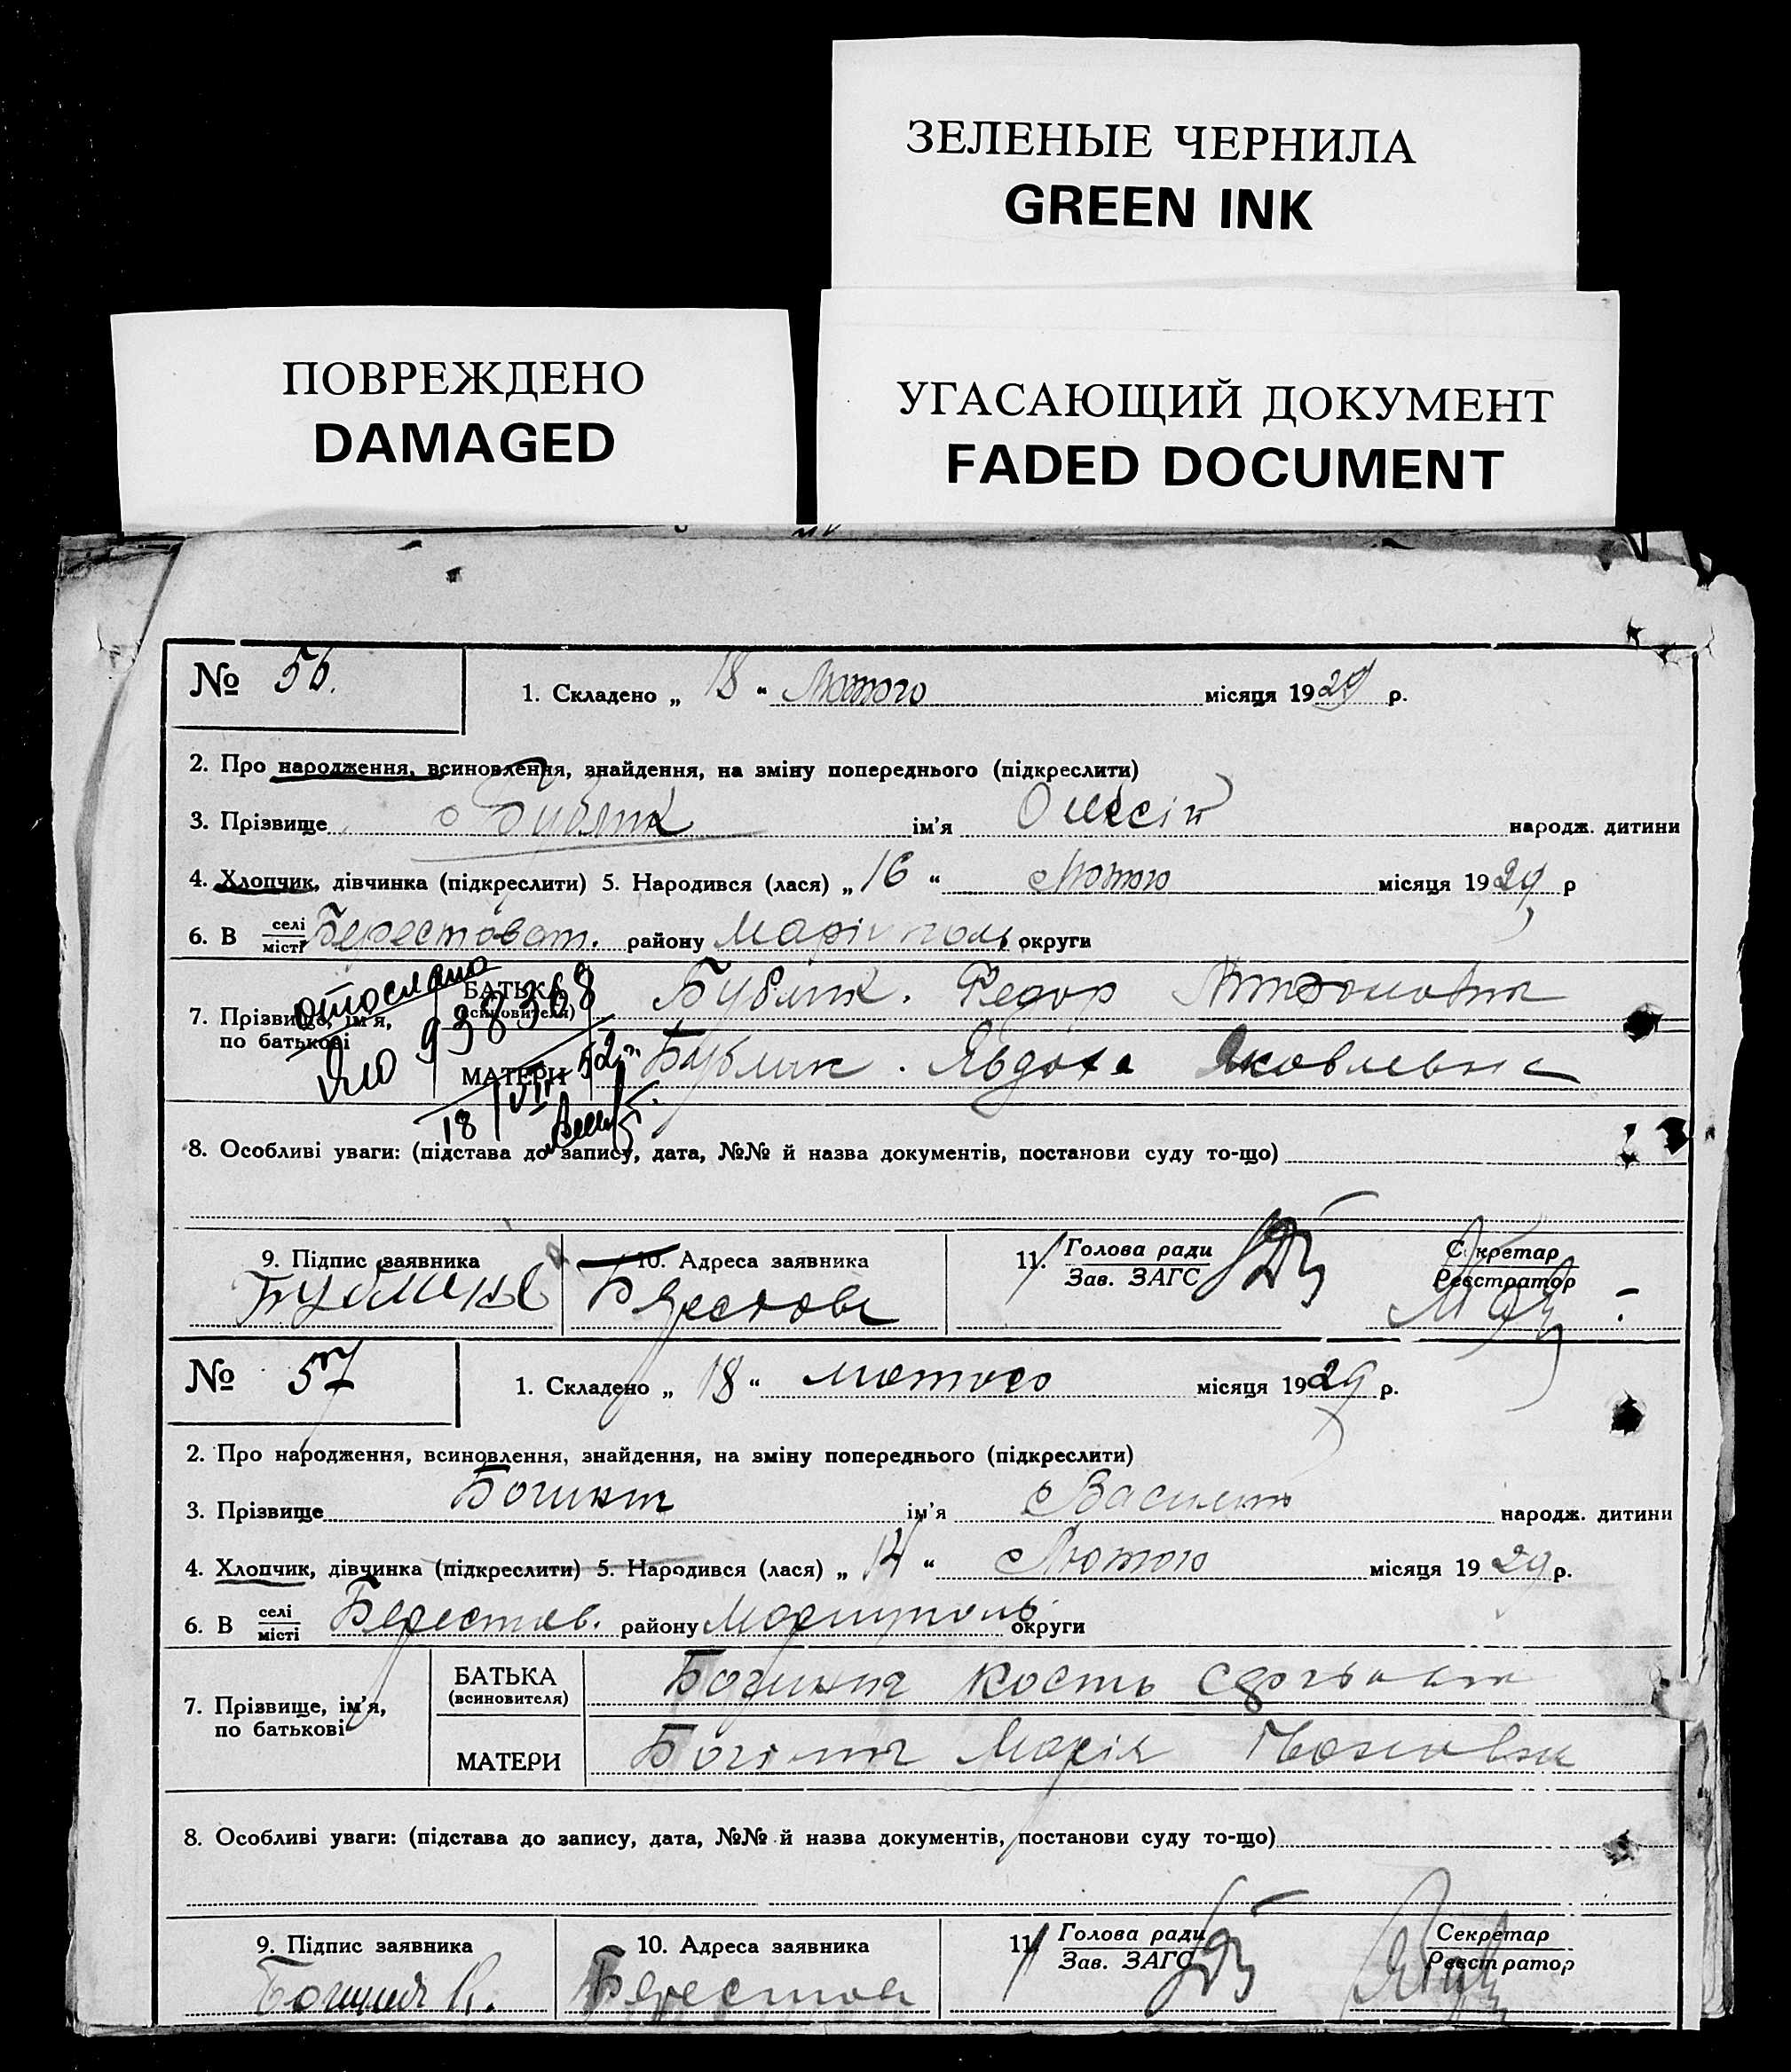 ЗЕЛЕНЫЕ ЧЕРНИЛА
GREEN INK
ПОВРЕЖДЕНО
DAMAGED
УГАСАЮЩИЙ ДОКУМЕНТ
FADED DOCUMENT
№ 56.
1. Складено „ 18 “ Лютого місяця 1929 р.
2. Про народження, всиновлення, знайдення, на зміну попереднього (підкреслити)
3. Прізвище Бублик ім'я Олексій народж. дитини
4. Хлопчик, дівчинка (підкреслити) 5. Народився (лася) „ 16 “ Лютого місяця 1929 р
6. В селі місті Берестоват. району Маріуполь округи
7. Прізвище, ім'я, по батькові
БАТЬКА (всиновителя) Бублик. Федор
МАТЕРИ Бублик. Явдоха Яковлевна
отослано
938368
18/VII 52
8. Особливі уваги: (підстава до запису, дата, №№ й назва документів, постанови суду то-що)
9. Підпис заявника
10. Адреса заявника
11. Голова ради Зав. ЗАГС
Секретар Реєстратор
Берестов
№ 57
1. Складено „ 18 “ лютого місяця 1929 р.
2. Про народження, всиновлення, знайдення, на зміну попереднього (підкреслити)
3. Прізвище ім'я народж. дитини
4. Хлопчик, дівчинка (підкреслити) 5. Народився (лася) „ 14 “ Лютого місяця 1929 р.
6. В селі місті Берестов. району Мариуполь округи
7. Прізвище, ім'я, по батькові
БАТЬКА (всиновителя) Кость
МАТЕРИ Марія
8. Особливі уваги: (підстава до запису, дата, №№ й назва документів, постанови суду то-що)
9. Підпис заявника
10. Адреса заявника
11 Голова ради Зав. ЗАГС
Секретар Реєстратор
Берестов